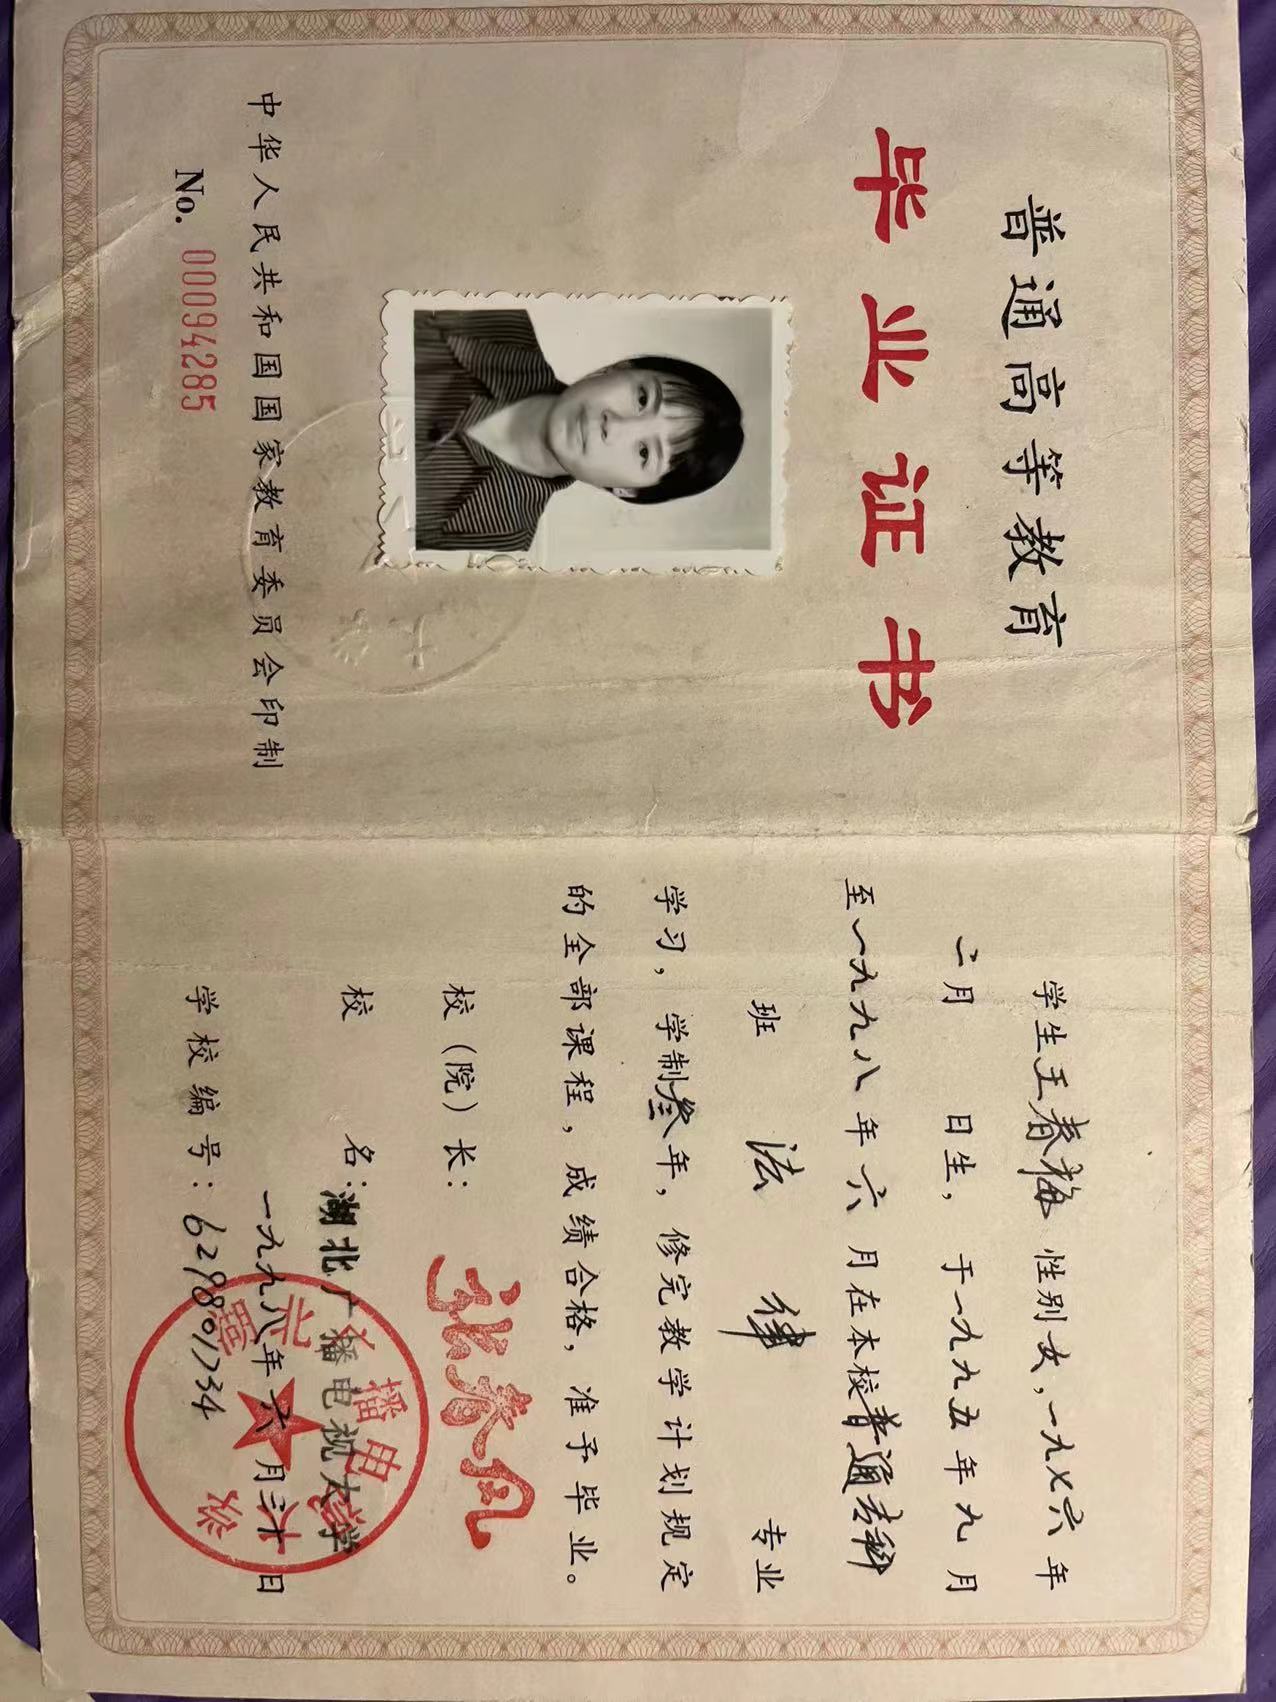 普通高等教育
毕业证书
中华人民共和国国家教育委员会印制
No. 00094285
学生王春梅 性别女，一九七六年
二月 日生，于一九九五年九月
至一九九八年六月在本校普通专科
班 法律 专业
学习，学制叁年，修完教学计划规定
的全部课程，成绩合格，准予毕业。
校（院）长：
校 名：湖北广播电视大学
一九九八年六月三十日
学校编号：